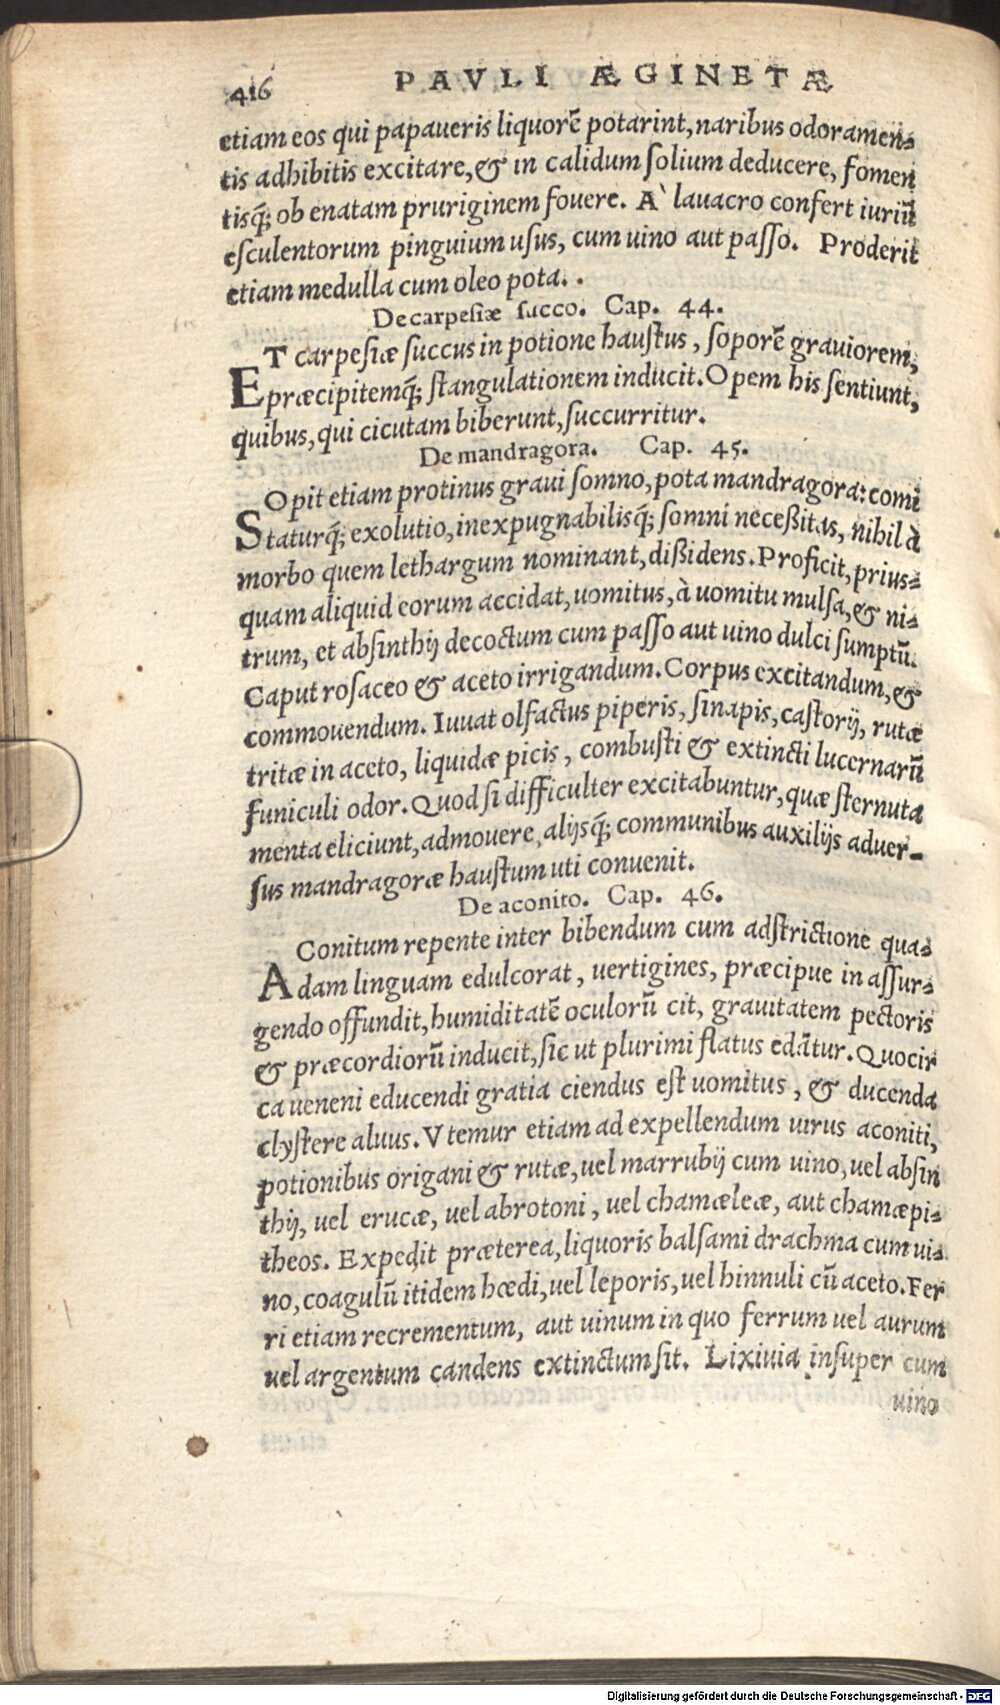 416 PAVLI ÆGINETÆ
etiam eos qui papaueris liquorē potarint, naribus odoramen-
tis adhibitis excitare, & in calidum solium deducere, fomen
tisq́; ob enatam pruriginem fouere. A` lauacro confert iuriū
esculentorum pinguium usus, cum uino aut passo. Proderit
etiam medulla cum oleo pota. .
De carpesiæ succo. Cap. 44.
ET carpesiæ succus in potione haustus, soporē grauiorem,
præcipitemq́; stangulationem inducit. Opem his sentiunt,
quibus, qui cicutam biberunt, succurritur.
De mandragora. Cap. 45.
SOpit etiam protinus graui somno, pota mandragora: comi
taturq́; exolutio, inexpugnabilisq́; somni neceßitas, nihil à
morbo quem lethargum nominant, dißidens. Proficit, prius-
quam aliquid eorum accidat, uomitus, à uomitu mulsa, & ni-
trum, et absinthij decoctum cum passo aut uino dulci sumptū.
Caput rosaceo & aceto irrigandum. Corpus excitandum, &
commouendum. Iuuat olfactus piperis, sinapis, castorij, rutæ
tritæ in aceto, liquidæ picis, combusti & extincti lucernarū
funiculi odor. Quod si difficulter excitabuntur, quæ sternuta
menta eliciunt, admouere, alijsq́; communibus auxilijs aduer-
sus mandragoræ haustum uti conuenit.
De aconito. Cap. 46.
AConitum repente inter bibendum cum adstrictione qua-
dam linguam edulcorat, uertigines, præcipue in assur-
gendo offundit, humiditatē oculorū cit, grauitatem pectoris
& præcordiorū inducit, sic ut plurimi flatus edātur. Quocir
ca ueneni educendi gratia ciendus est uomitus, & ducenda
clystere aluus. Vtemur etiam ad expellendum uirus aconiti,
potionibus origani & rutæ, uel marrubij cum uino, uel absin
thij, uel erucæ, uel abrotoni, uel chamæleæ, aut chamæpi-
theos. Expedit præterea, liquoris balsami drachma cum ui-
no, coagulū itidem hœdi, uel leporis, uel hinnuli cū aceto. Fer
ri etiam recrementum, aut uinum in quo ferrum uel aurum
uel argentum candens extinctum sit. Lixiuia insuper cum
uino
Digitalisierung gefördert durch die Deutsche Forschungsgemeinschaft - DFG